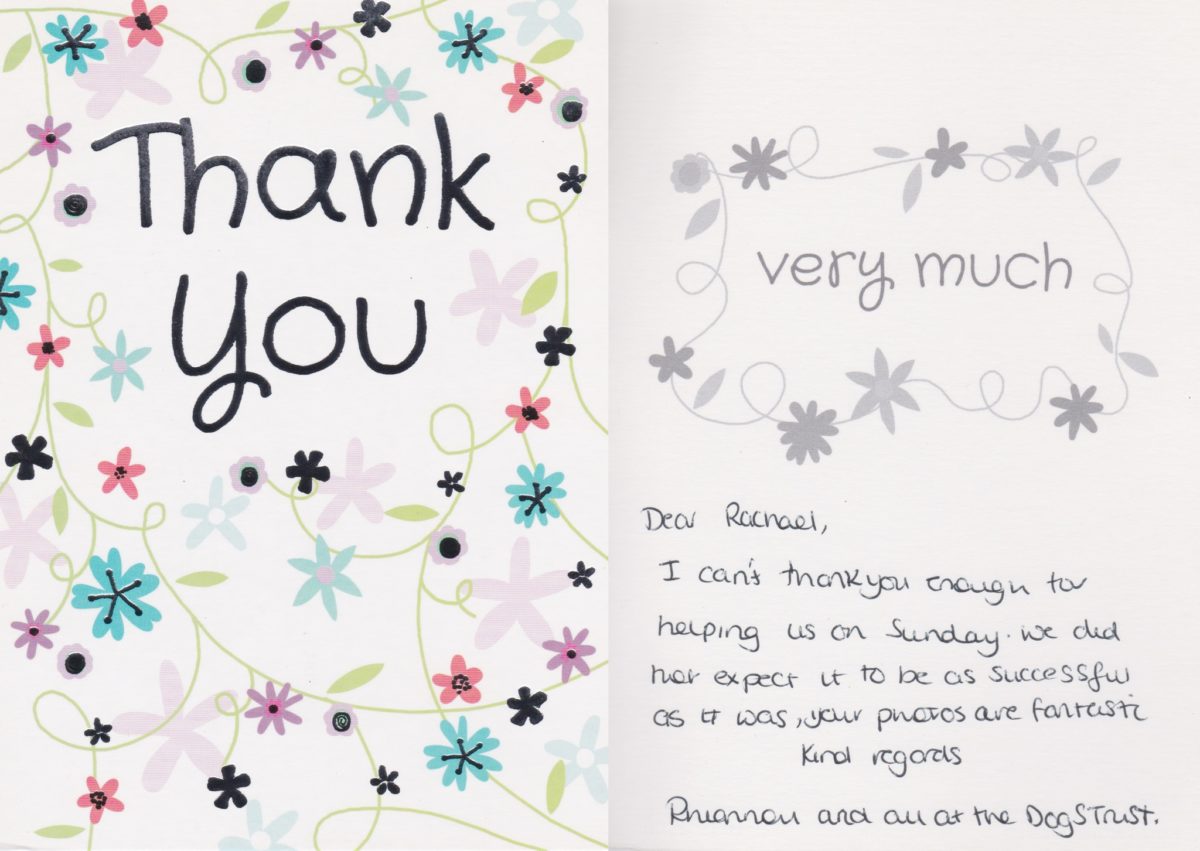 Thank
you
very much
Dear Rachael,
I can't thankyou enough for
helping us on Sunday. we did
not expect it to be as successful
as it was, your photos are fantastic
Kind regards
Rhiannon and all at the DogsTrust.